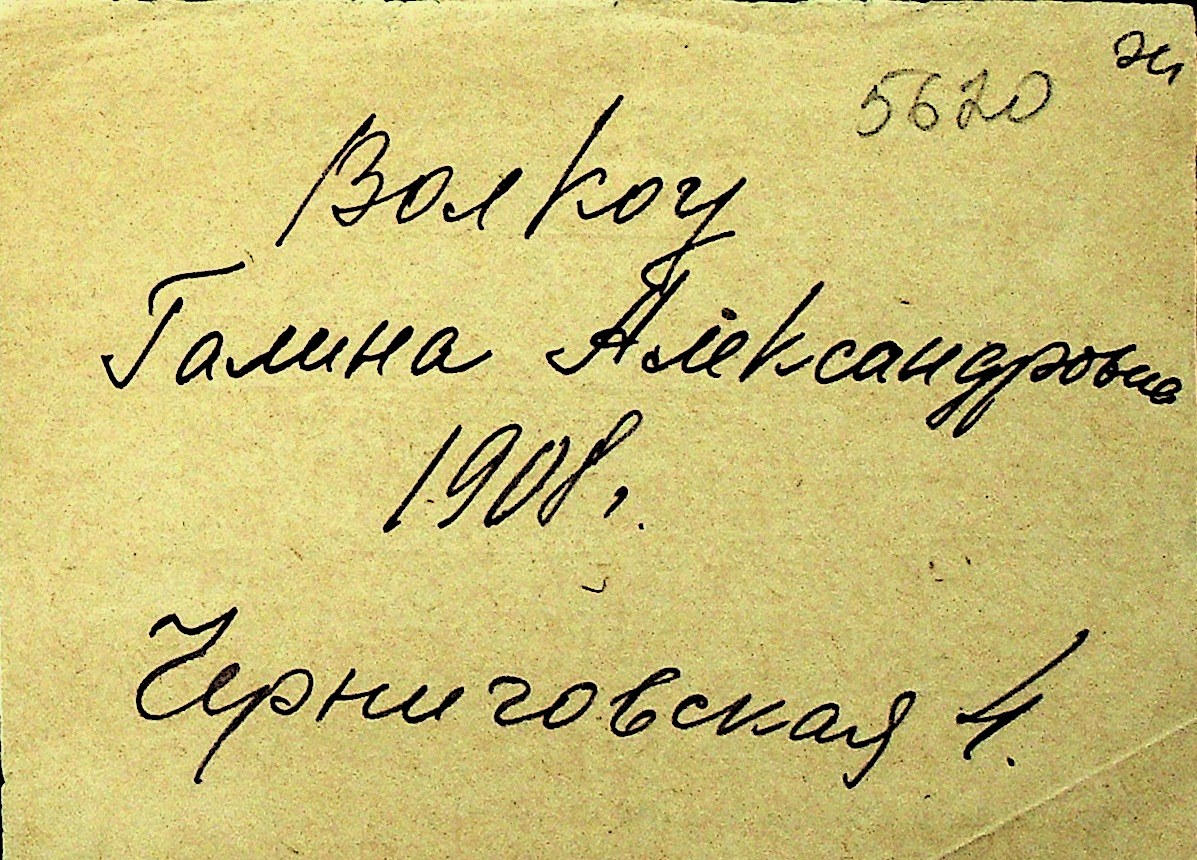 5620
Волкоу
Галина Александровна
1908г.
Черниговская 4.